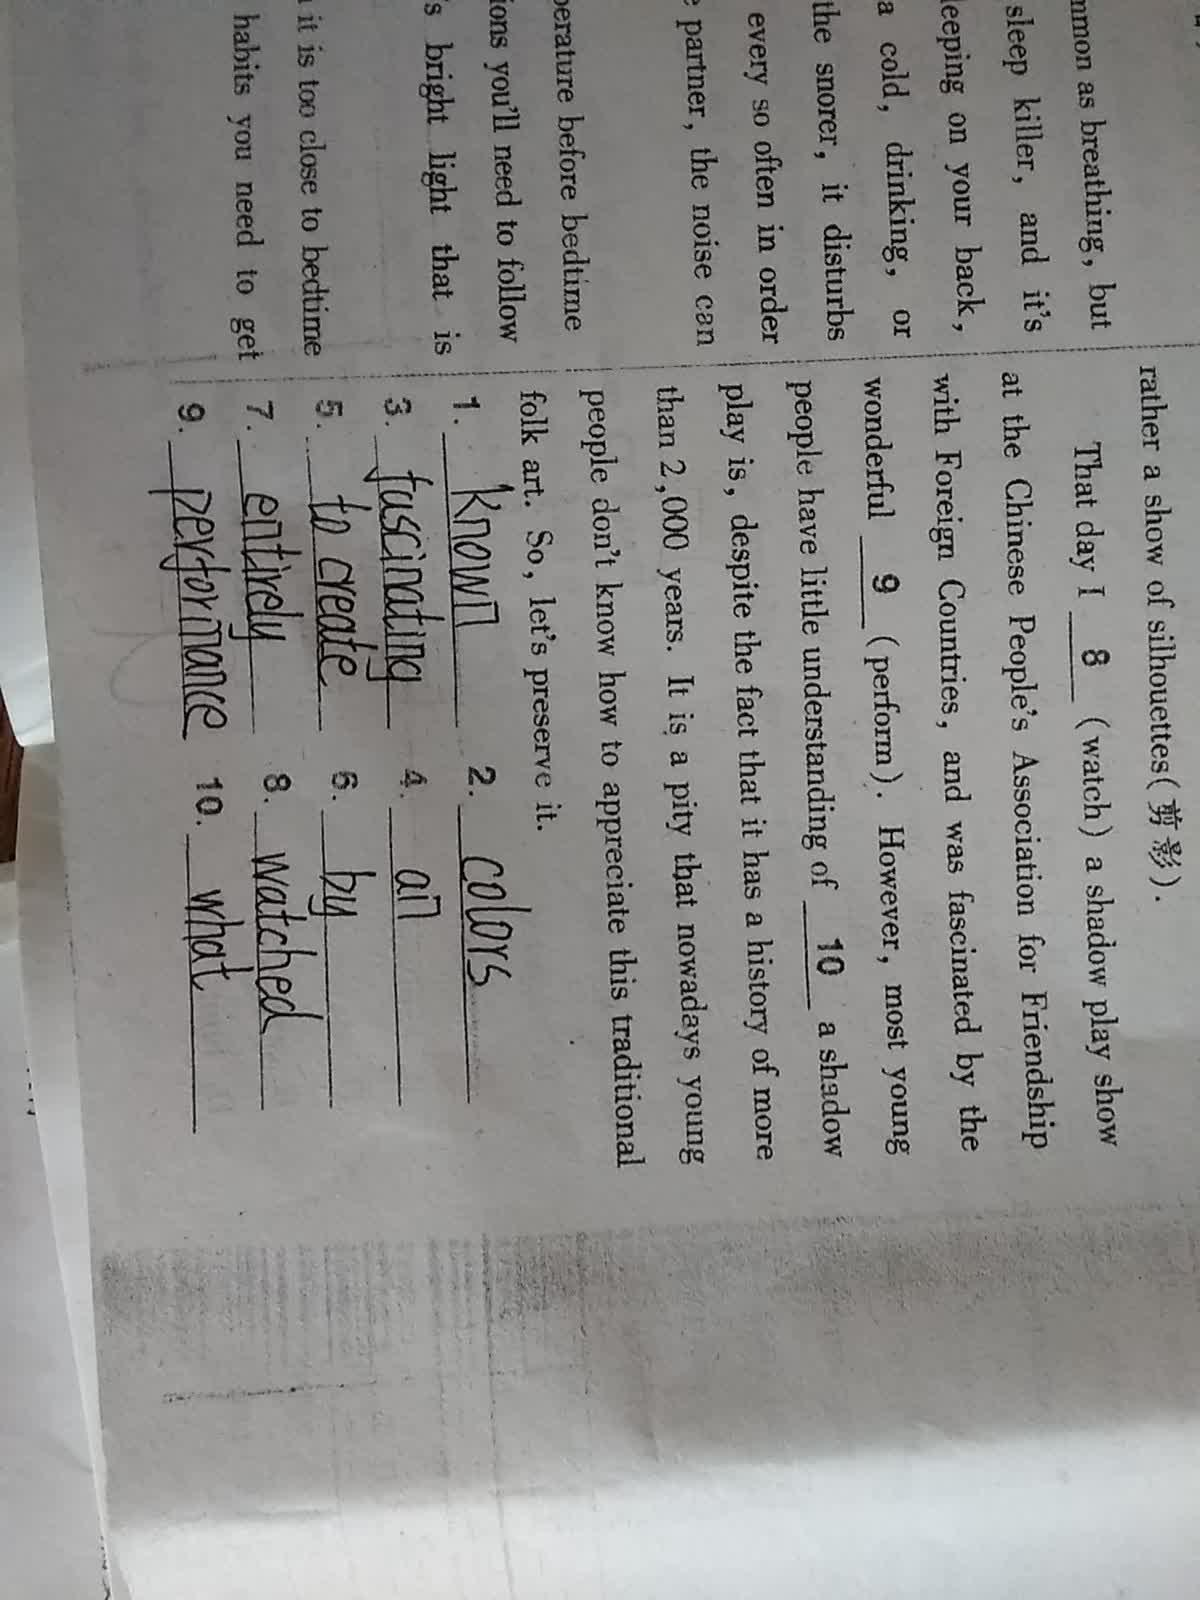 mmon as breathing, but
sleep killer, and it's
leeping on your back,
a cold, drinking, or
the snorer, it disturbs
every so often in order
e partner, the noise can
perature before bedtime
ions you'll need to follow
's bright light that is
it is too close to bedtime
habits you need to get
rather a show of silhouettes(剪影).
That day I 8 (watch) a shadow play show
at the Chinese People's Association for Friendship
with Foreign Countries, and was fascinated by the
wonderful 9 (perform). However, most young
people have little understanding of 10 a shadow
play is, despite the fact that it has a history of more
than 2,000 years. It is a pity that nowadays young
people don't know how to appreciate this traditional
folk art. So, let's preserve it.
1. known 2. colors
3. fascinating 4. an
5. to create 6. by
7. entirely 8. watched
9. performance 10. what